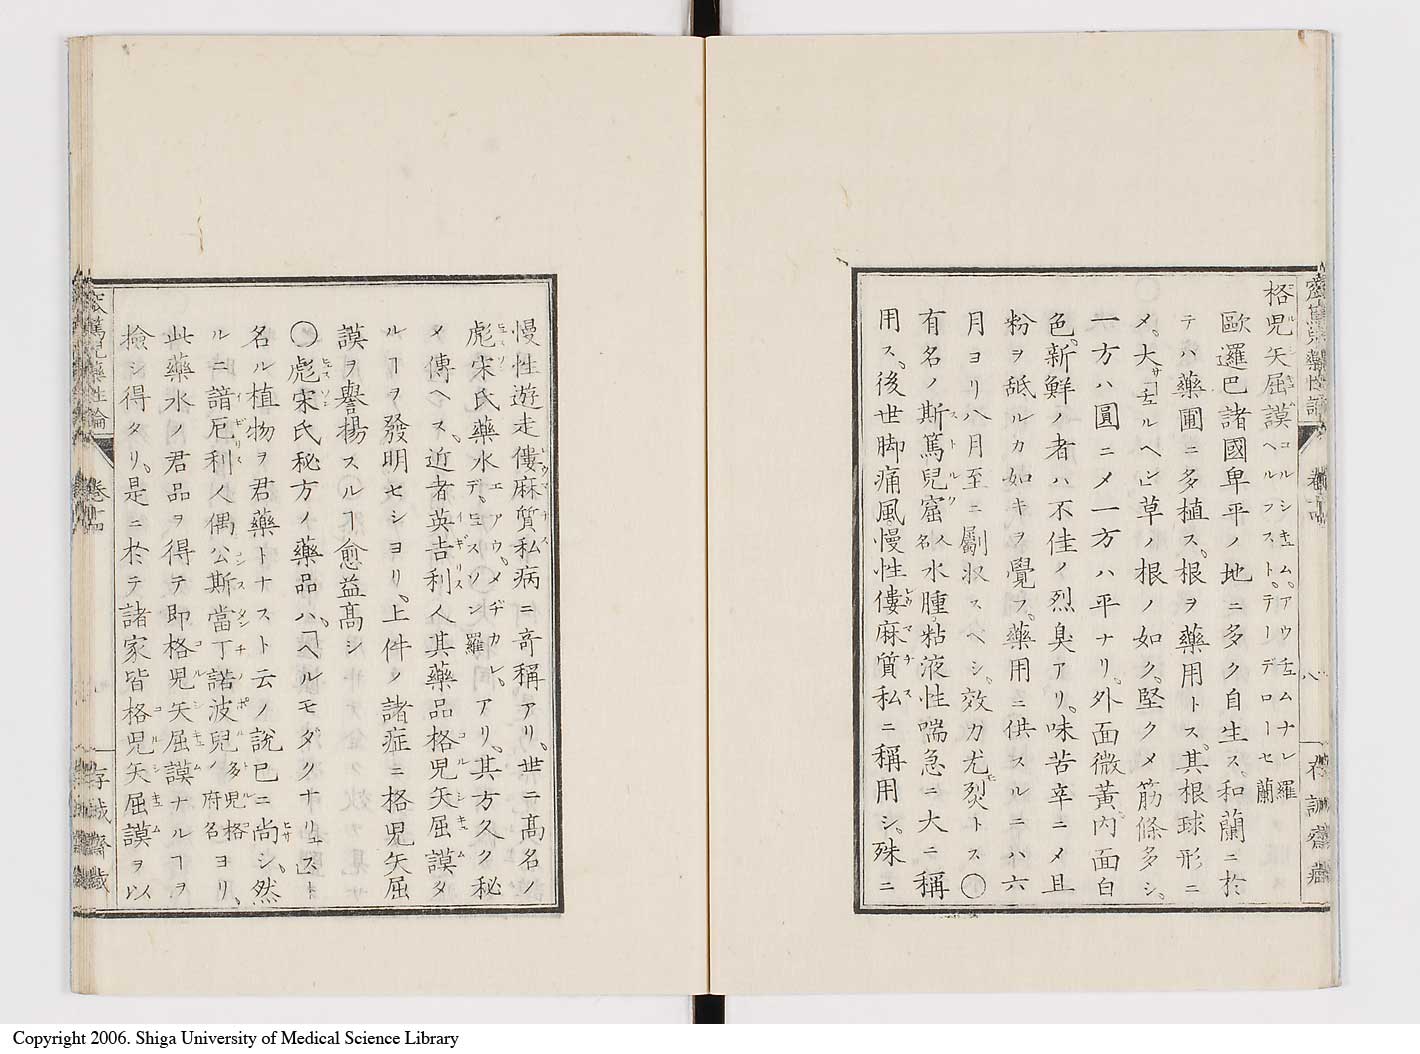 格兒矢屈謨 コルシキュム。アウ㔫ムナレ羅 ヘルフスト、テーデローセ蘭
歐邏巴諸國卑平ノ地ニ多ク自生ス。和蘭ニ於
テハ藥圃ニ多植ス。根ヲ藥用トス。其根球形ニ
メ。大サ㔫ルヘン草ノ根ノ如ク。堅クメ筋條多シ。
一方ハ圓ニメ一方ハ平ナリ。外面微黃。內面白
色。新鮮ノ者ハ不佳ノ烈臭アリ。味苦辛ニメ且
粉ヲ舐ルカ如キヲ覺フ。藥用ニ供スルニハ六
月ヨリ八月至ニ劚収スヘシ。效力尤烈トス〇
有名ノ斯篤兒窟人名水腫。粘液性喘急ニ大ニ稱
用ス。後世脚痛風。慢性僂麻質私ニ稱用シ。殊ニ
慢性遊走僂麻質私病ニ奇稱アリ。世ニ高名ノ
彪宋氏藥水エアウ。メヂカレ、デ、ヒュスソン羅アリ。其方久ク秘
メ傳ヘス。近者英吉利人其藥品格兒矢屈謨タ
ルヿヲ發明セシヨリ。上件ノ諸症ニ格兒矢屈
謨ヲ譽揚スルヿ愈益高シ
〇彪宋氏秘方ノ藥品ハ。「ヘルモダクナリュス」ト
名ル植物ヲ君藥トナスト云ノ說已ニ尚シ。然
ルニ諳厄利人偶公斯當丁諾波兒多兒格ノ府名ヨリ、
此藥水ノ君品ヲ得テ即格兒矢屈謨ナルヿヲ
撿シ得タリ。是ニ於テ諸家皆格兒矢屈謨ヲ以
篤兒藥性論
卷十四
存誠齋藏
Copyright 2006. Shiga University of Medical Science Library